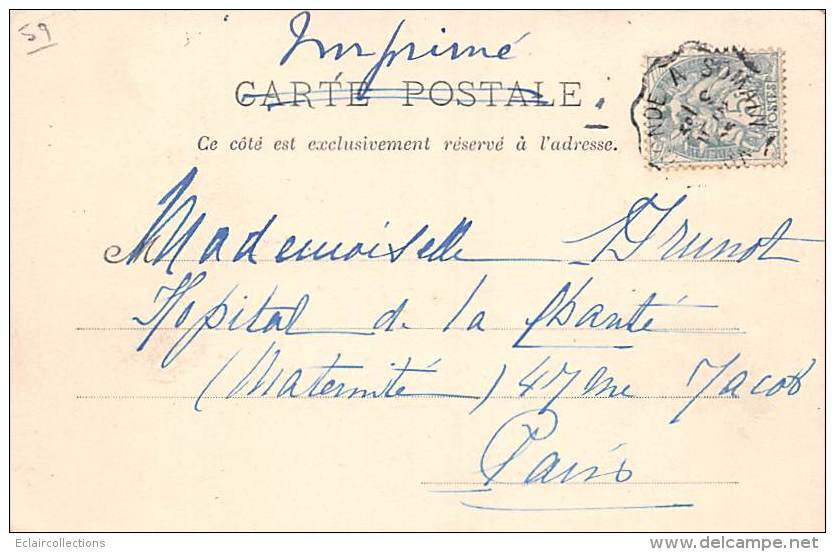 59
Imprimé
CARTE POSTALE
Ce côté est exclusivement réservé à l'adresse.
A SOMAIN
POSTES
Mademoiselle Brunot
Hopital de la Charité
(Maternité) 47 rue Jacob
Paris
Eclaircollections
www.delcampe.net